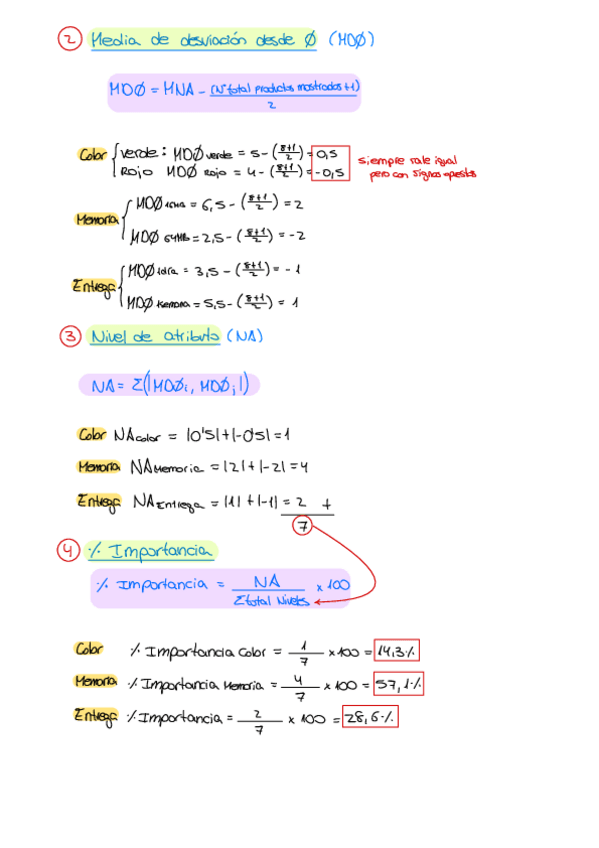 2 Media de desviación desde Ø (MDØ)
MDØ = MNA - (Nº total productos mostrados + 1) / 2
Color { verde: MDØ verde = 5 - (8+1 / 2) = 0,5
Rojo MDØ rojo = 4 - (8+1 / 2) = -0,5
siempre sale igual
pero con signos opuestos
Memoria { MDØ 16MB = 6,5 - (8+1 / 2) = 2
MDØ 64MB = 2,5 - (8+1 / 2) = -2
Entrega { MDØ 1día = 3,5 - (8+1 / 2) = -1
MDØ 1semana = 5,5 - (8+1 / 2) = 1
3 Nivel de atributo (NA)
NA = Σ(|MDØi, MDØj|)
Color NA color = |0'5| + |-0'5| = 1
Memoria NA Memoria = |2| + |-2| = 4
Entrega NA Entrega = |1| + |-1| = 2 +
7
4 % Importancia
% Importancia = NA / Σ total Niveles × 100
Color % Importancia Color = 1 / 7 × 100 = 14,3%
Memoria % Importancia Memoria = 4 / 7 × 100 = 57,1%
Entrega % Importancia = 2 / 7 × 100 = 28,6%